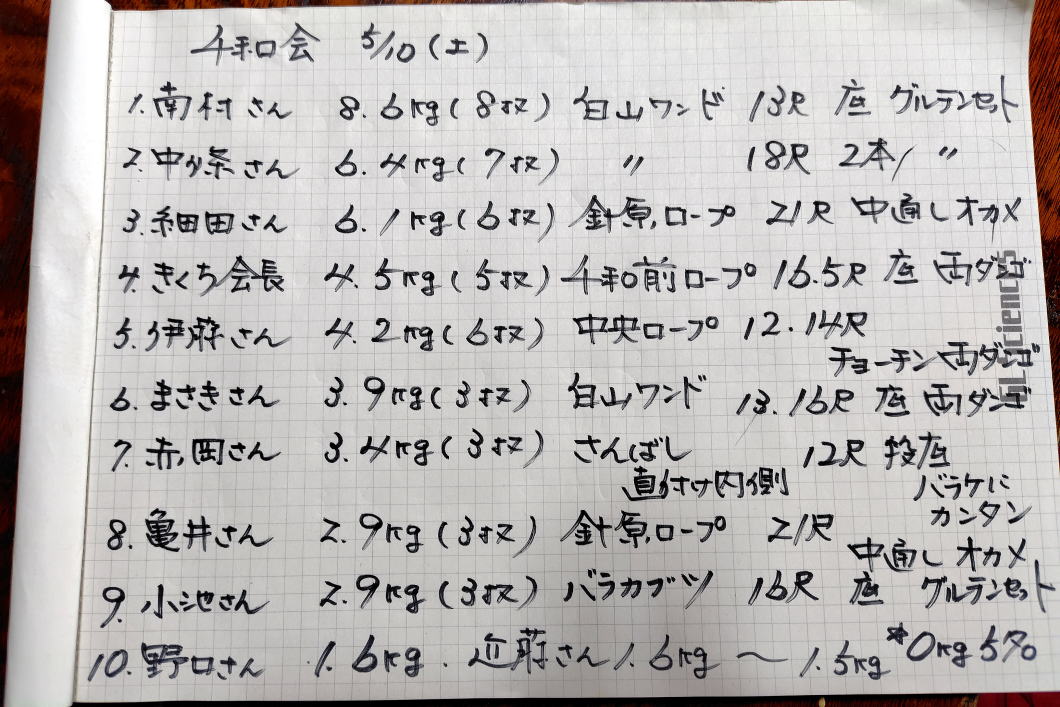 千和会 5/10(土)
1.南村さん 8.6kg(8枚) 白山ワンド 13尺 底 グルテンセット
2.中条さん 6.4kg(7枚) 〃 18尺 2本/〃
3.細田さん 6.1kg(6枚) 針原ロープ 21尺 中通しオカメ
4.きくち会長 4.5kg(5枚) 千和前ロープ 16.5尺 底 両ダンゴ
5.伊藤さん 4.2kg(6枚) 中央ロープ 12.14尺
チョーチン両ダンゴ
6.まさきさん 3.9kg(3枚) 白山ワンド 13.16尺 底 両ダンゴ
7.赤岡さん 3.4kg(3枚) さんばし 12尺 段底
直付け内側 バラケに
カンタン
8.亀井さん 2.9kg(3枚) 針原ロープ 21尺
中通し オカメ
9.小池さん 2.9kg(3枚) バラカブツ 16尺 底 グルテンセット
10.野口さん 1.6kg.近藤さん1.6kg 〜 1.5kg *0kg 5名